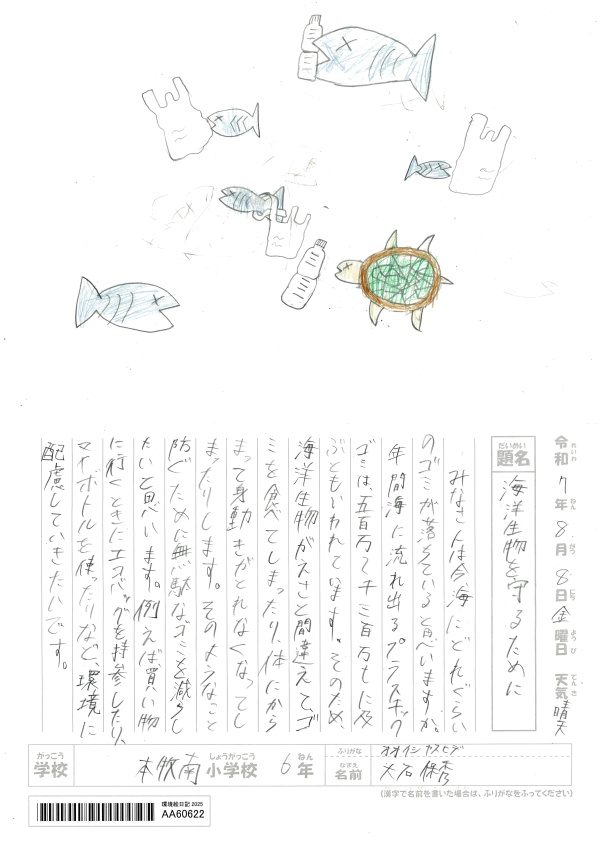 令和7年8月8日金曜日 天気晴天
れいわ ねん がつ にち ようび てんき
だいめい
題名
海洋生物を守るために
みなさんは今海にどれぐらい
のゴミが落ちていると思いますか。
年間海に流れ出るプラスチック
ゴミは、五百万〜千三百万tに及
ぶともいわれています。そのため、
海洋生物がえさと間違えて、ゴ
ミを食べてしまったり、体にから
まって身動きがとれなくなってし
まったりします。そのようなこと
防ぐために無駄なゴミを減らし
たいと思います。例えば、買い物
に行くときにエコバッグを持参したり、
マイボトルを使ったりなど、環境に
配慮していきたいです。
がっこう
学校
本牧南小学校 6年
しょうがっこう ねん
ふりがな
オオイシ ヤスヒデ
なまえ
名前
大石 保秀
(漢字で名前を書いた場合は、ふりがなをふってください)
環境絵日記 2025
AA60622